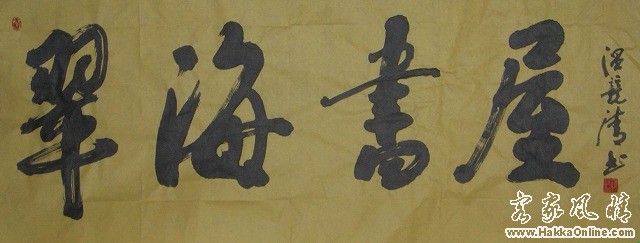 翠海書屋
温競清书
客家風情
www.HakkaOnline.com